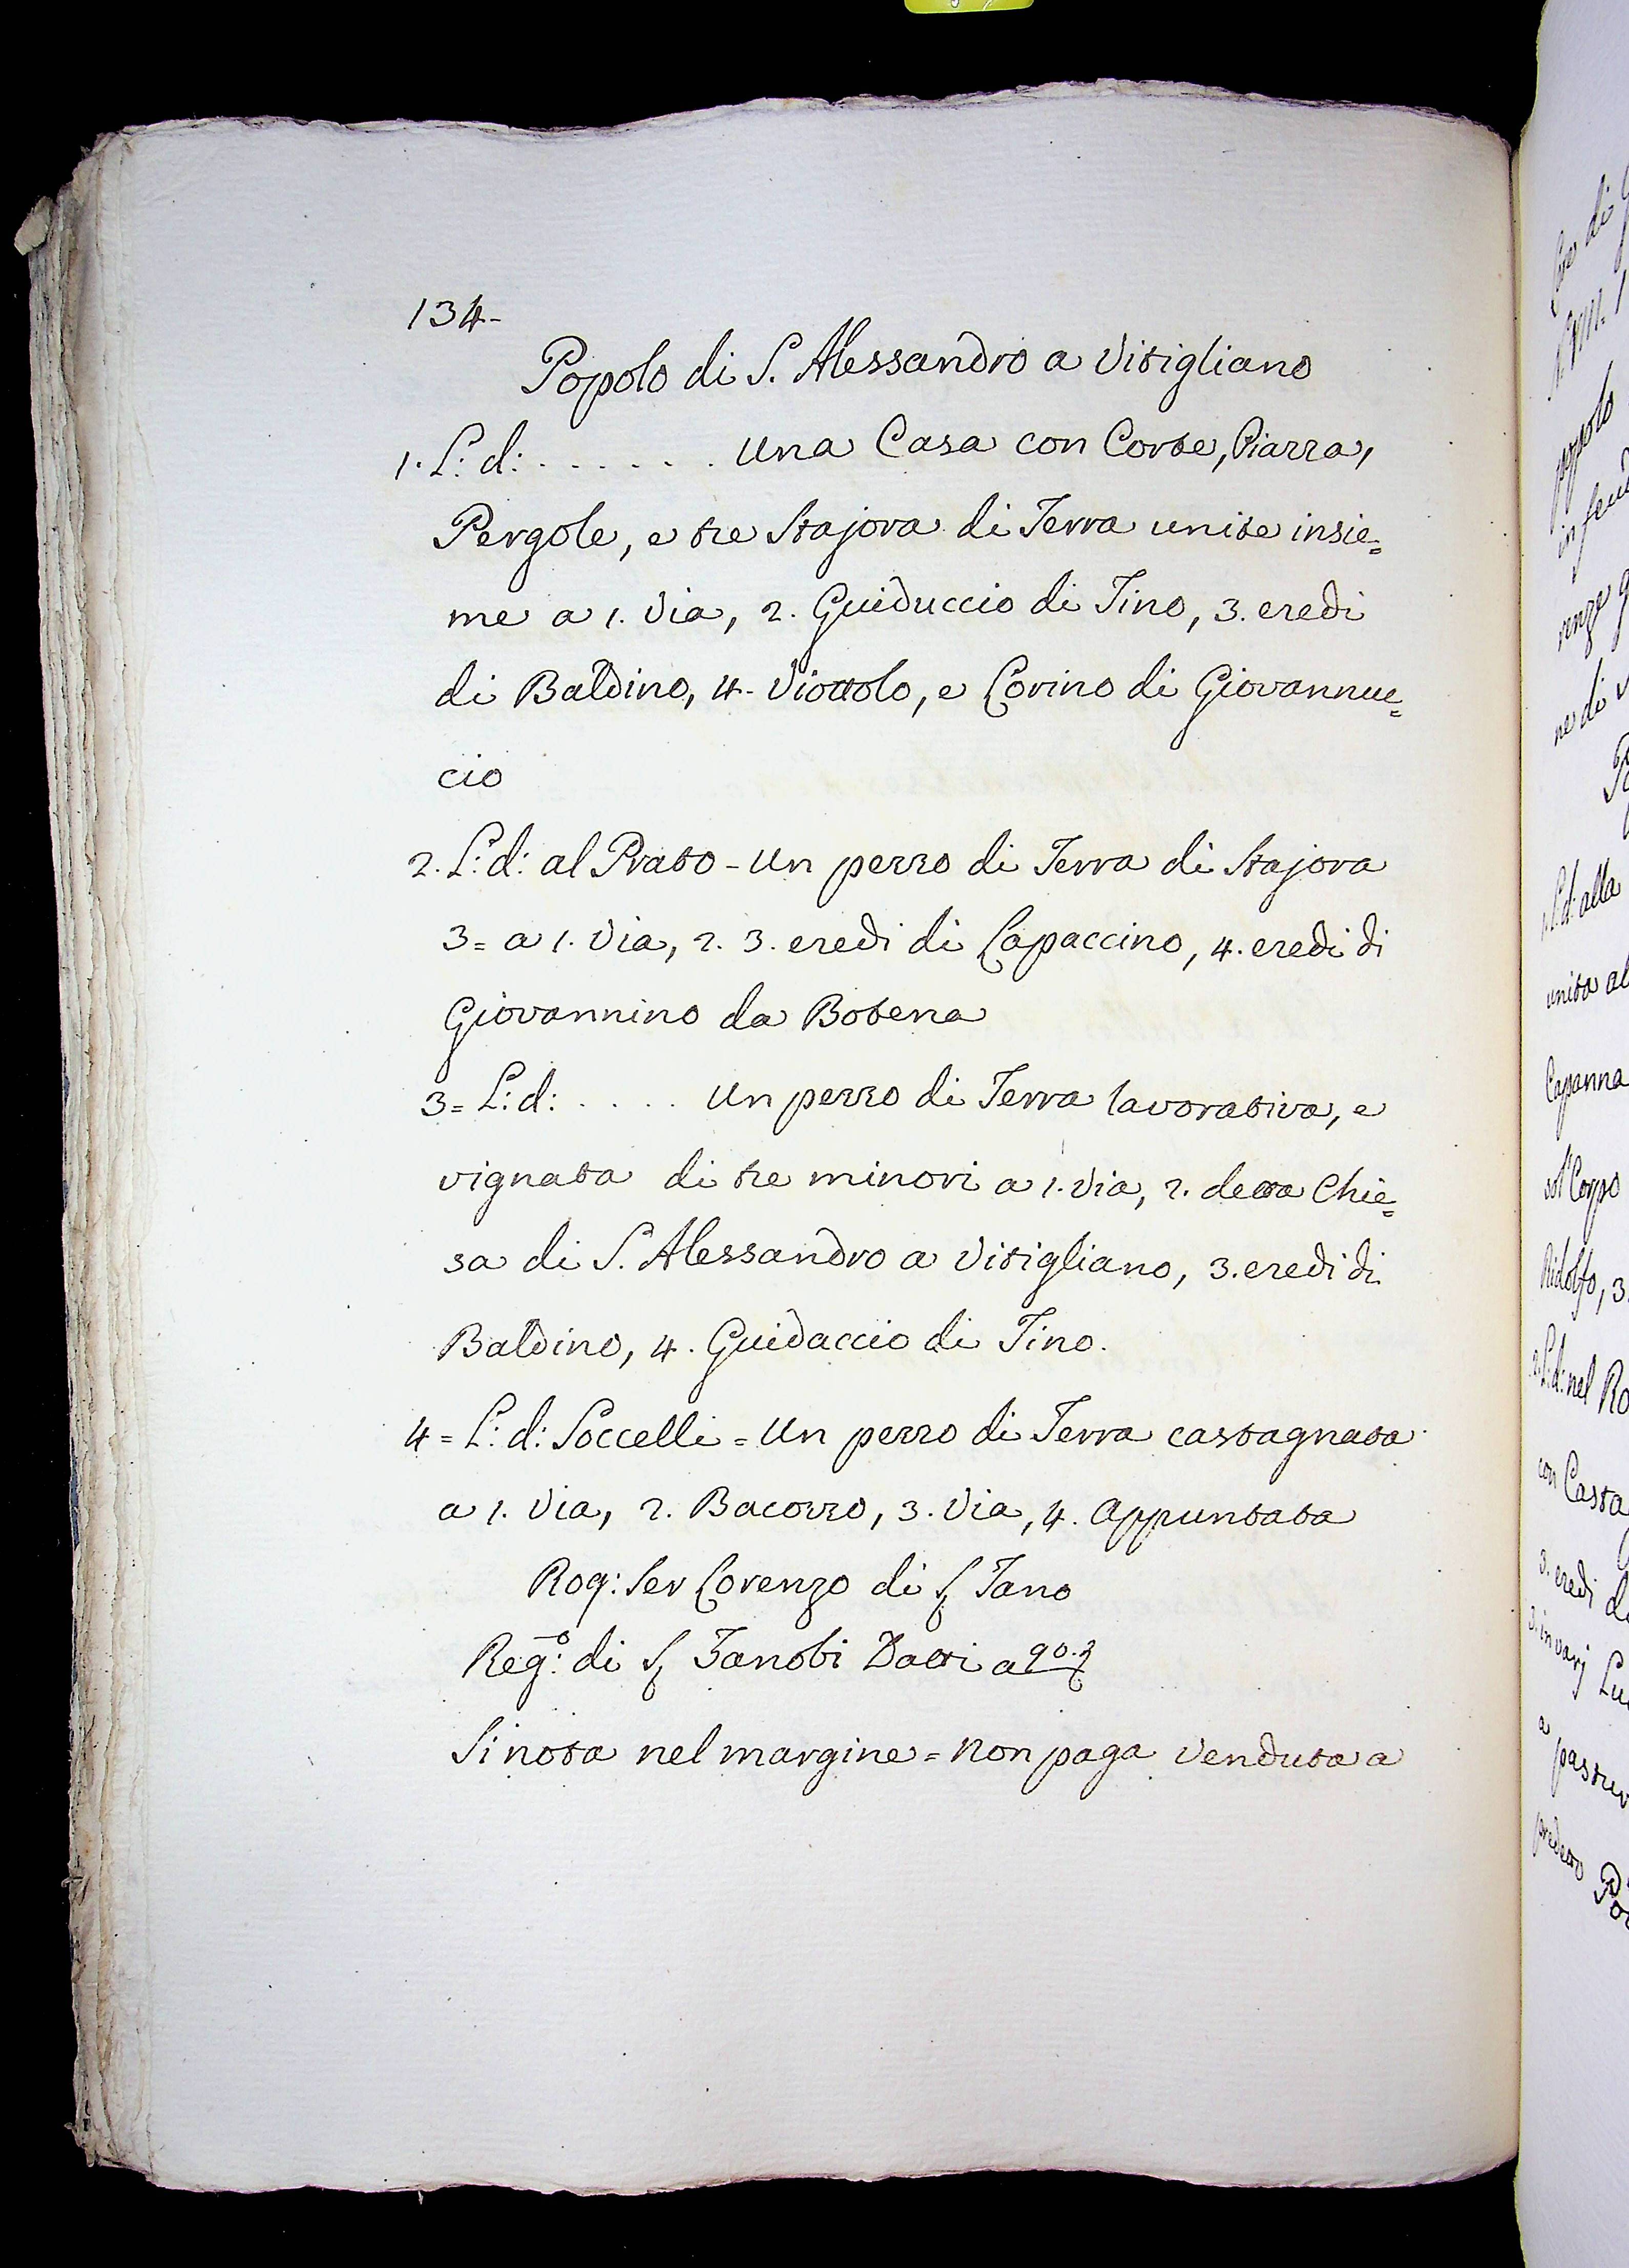 134-
Popolo di S. Alessandro a Vitigliano
1. L: d: . . . . . . Una Casa con Corte, Piazza,
Pergole, e tre Stajora di Terra unite insie=
me a 1. Via, 2. Guiduccio di Tino, 3. eredi
di Baldino, 4. Viottolo, e Lorino di Giovannuc=
cio
2. L: d: al Prato - Un pezzo di Terra di Stajora
3= a 1. Via, 2. 3. eredi di Lapaccino, 4. eredi di
Giovannino da Botena
3= L: d: . . . . Un pezzo di Terra lavorativa, e
vignata di tre minori a 1. Via, 2. detta Chie=
sa di S. Alessandro a Vitigliano, 3. eredi di
Baldino, 4. Guidaccio di Tino.
4= L: d: Soccelli = Un pezzo di Terra castagnata
a 1. Via, 2. Bacozzo, 3. Via, 4. Appuntata
Rog: Ser Lorenzo di S. Tano
Reg:o di S. Zanobi Datti a 90.2
Si nota nel margine = non paga venduta a
popolo
L: d: alla
unita al
Capanna
Ridolfo, 3.
2. L: d: nel
con Casta
3. eredi
3. in varj
predetto